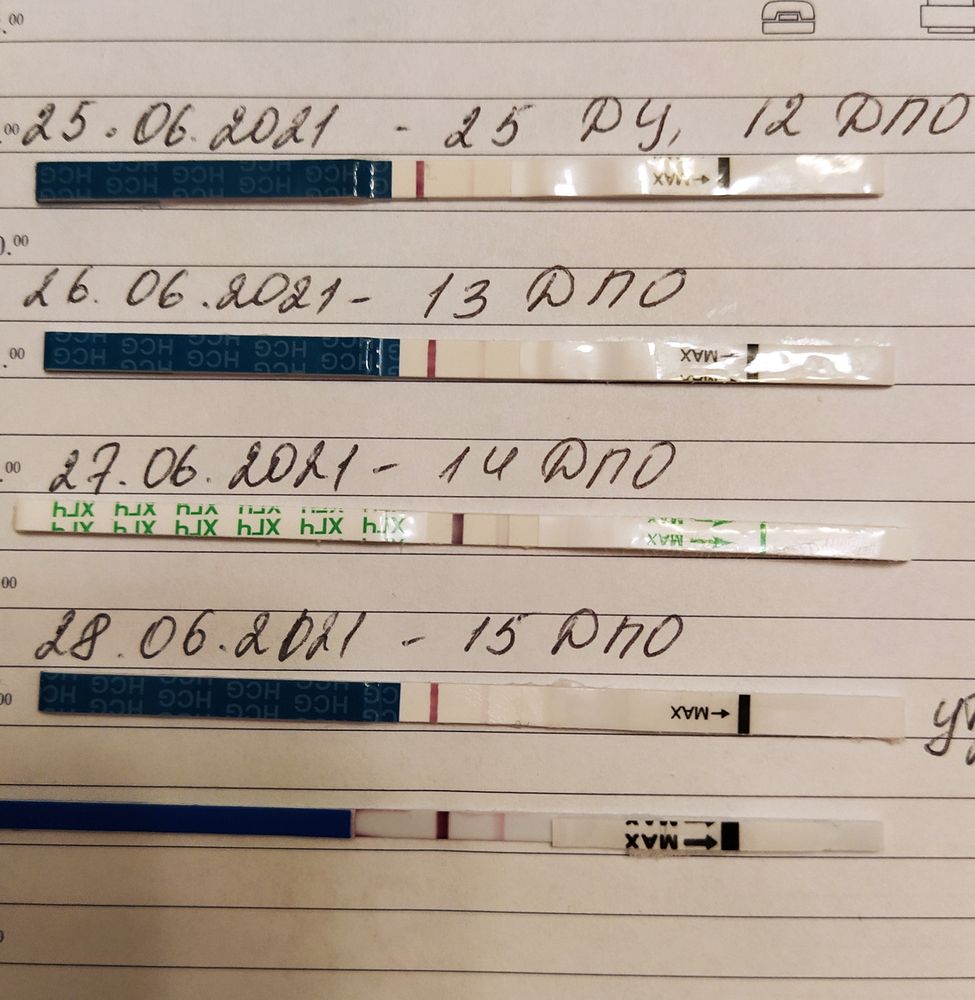 .00
25.06.2021 - 25 ДЦ, 12 ДПО
.00
HCG HCG HCG HCG HCG HCG
←MAX
0.00
26.06.2021 - 13 ДПО
.00
HCG HCG HCG HCG HCG HCG
←MAX
.00
27.06.2021 - 14 ДПО
ХГЧ ХГЧ ХГЧ ХГЧ ХГЧ ХГЧ
MAX
.00
28.06.2021 - 15 ДПО
00
HCG HCG HCG HCG HCG HCG
MAX→
MAX→
0